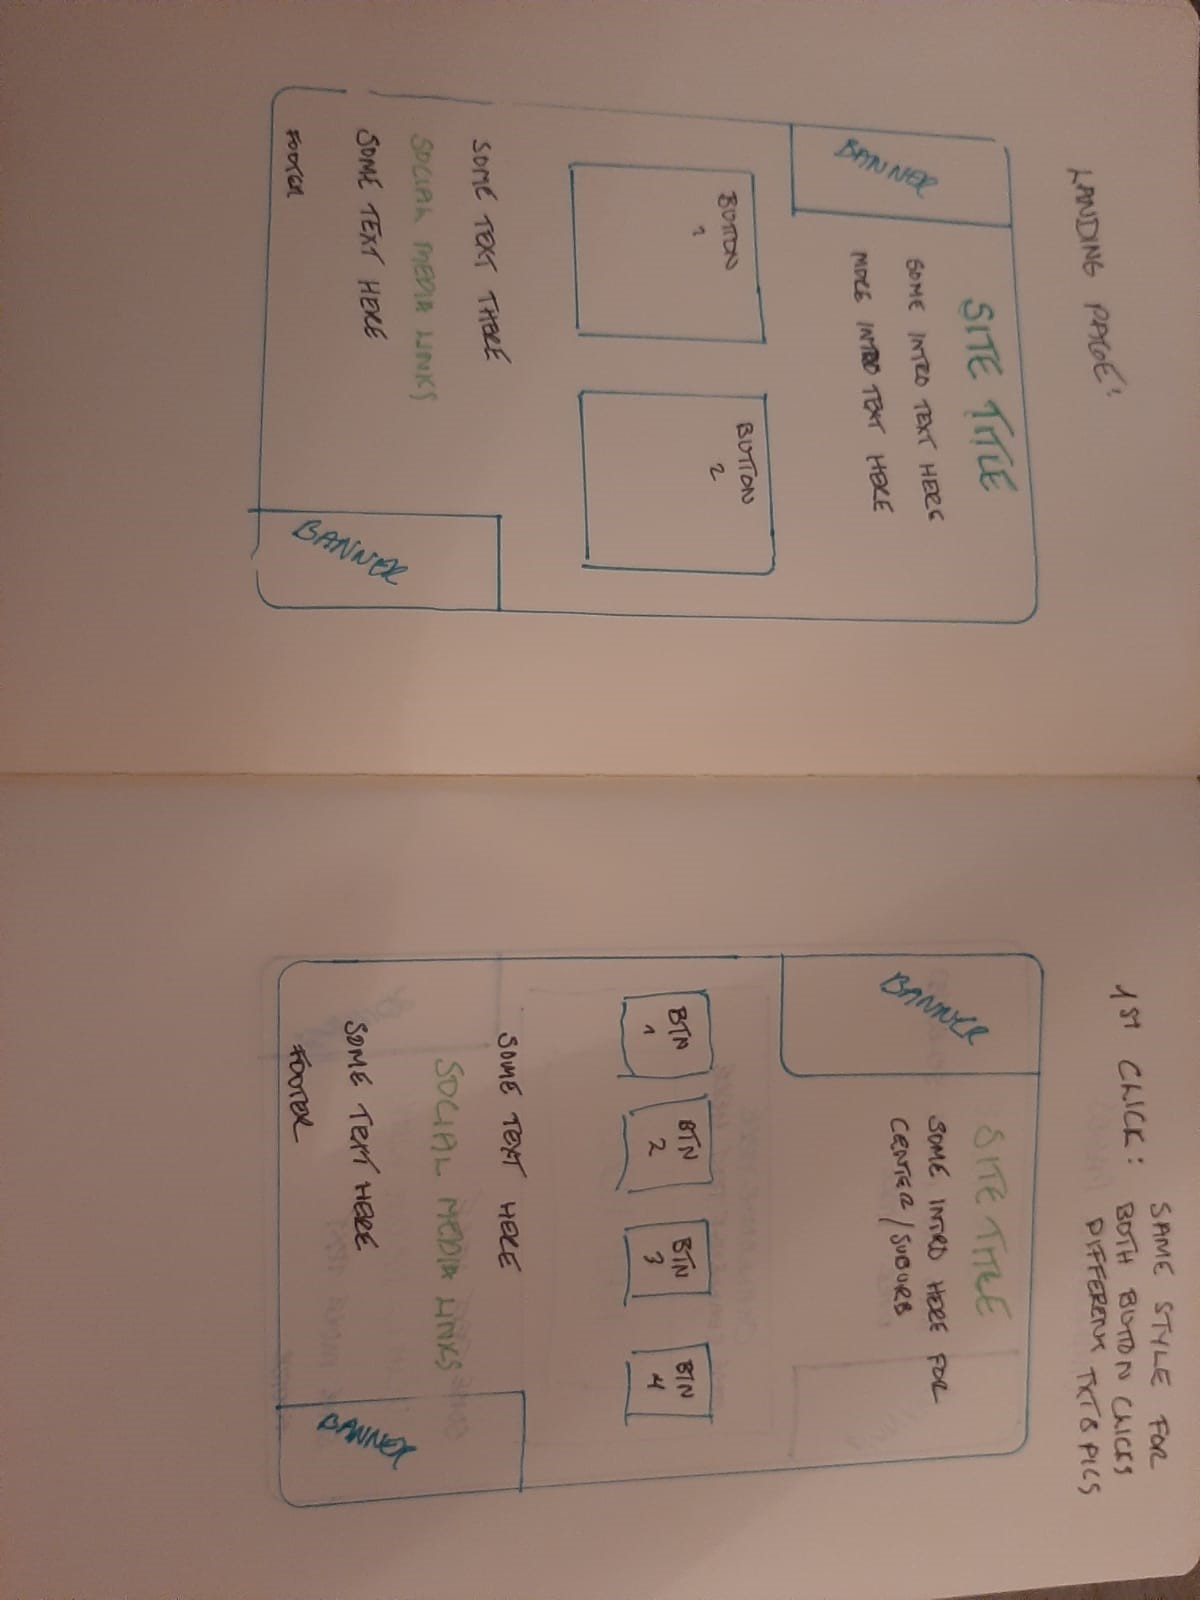 LANDING PAGE:
BANNER
SITE TITLE
SOME INTRO TEXT HERE
MORE INTRO TEXT HERE
BUTTON
1
BUTTON
2
SOME TEXT THERE
SOCIAL MEDIA LINKS
SOME TEXT HERE
FOOTER
BANNER
SAME STYLE FOR
1ST CLICK: BOTH BUTTON CLICKS
DIFFERENT TXT & PICS
BANNER
SITE TITLE
SOME INTRO HERE FOR
CENTER/SUBURB
BTN
1
BTN
2
BTN
3
BTN
4
SOME TEXT HERE
SOCIAL MEDIA LINKS
SOME TEXT HERE
FOOTER
BANNER